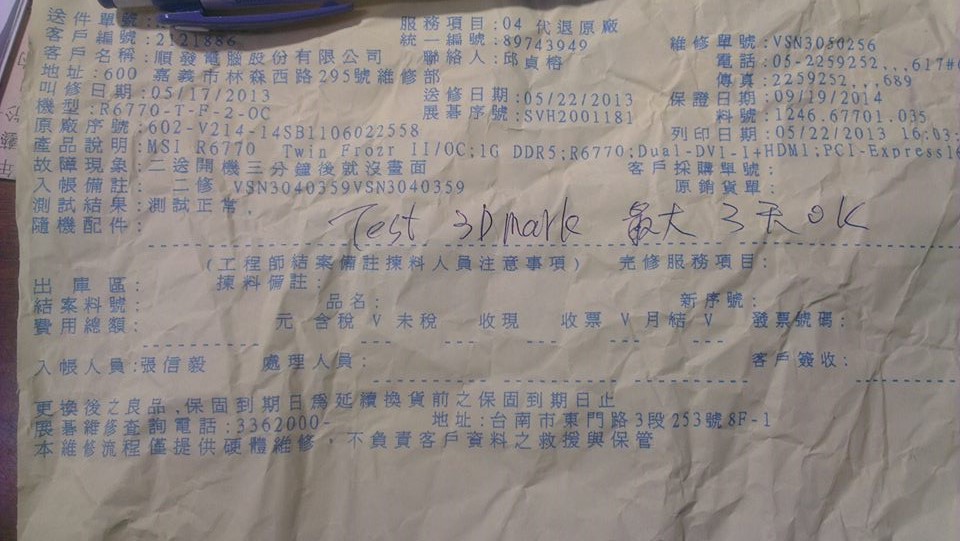 送件單號: 服務項目:04 代退原廠
客戶編號:2121886 統一編號:89743949 維修單號:VSN3050256
客戶名稱:順發電腦股份有限公司 聯絡人:邱貞榕 電話:05-2259252,,,617#6
地址:600 嘉義市林森西路295號維修部 傳真:2259252,,,689
叫修日期:05/17/2013 送修日期:05/22/2013 保證日期:09/19/2014
機型:R6770-T-F-2-OC 展碁序號:SVH2001181 料號:1246.67701.035
原廠序號:602-V214-14SB1106022558 列印日期:05/22/2013 16:03:
產品說明:MSI R6770 Twin Frozr II/OC;1G DDR5;R6770;Dual-DVI-I+HDMI;PCI-Express16
故障現象:二送開機三分鐘後就沒畫面 客戶採購單號:
入帳備註: 二修 VSN3040359VSN3040359 原銷貨單:
測試結果:測試正常,
隨機配件: Test 3D mark 最大 3天 OK
(工程師結案備註揀料人員注意事項) 完修服務項目:
出庫區: 揀料備註:
結案料號: 品名: 新序號:
費用總額: 元 含稅 V 未稅 收現 收票 V 月結 V 發票號碼:
入帳人員:張信毅 處理人員: 客戶簽收:
更換後之良品,保固到期日為延續換貨前之保固到期日止
展碁維修查詢電話:3362000- 地址:台南市東門路3段253號8F-1
本維修流程僅提供硬體維修,不負責客戶資料之救援與保管